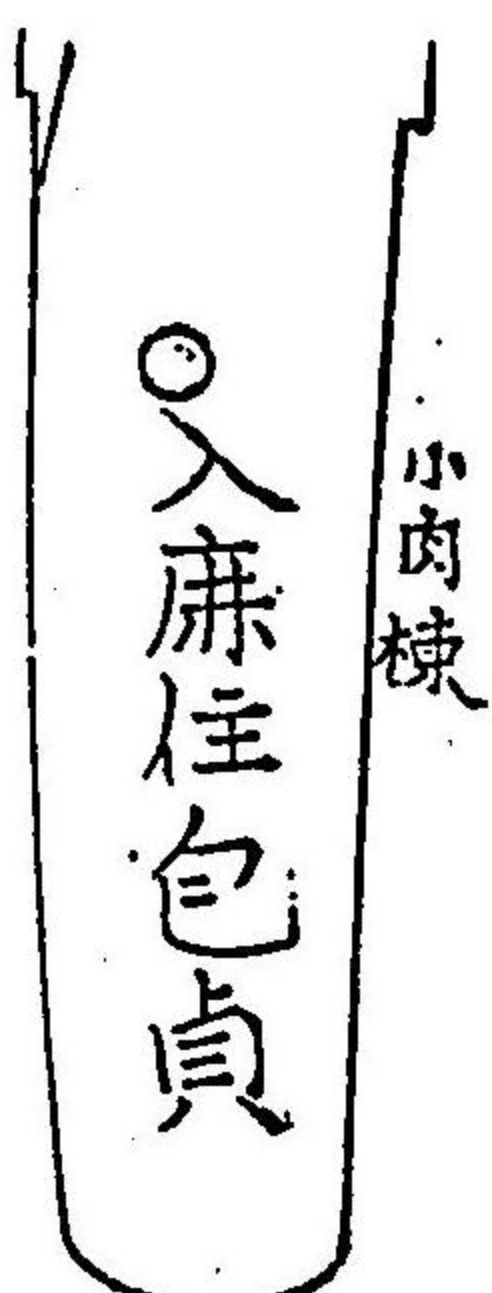 小肉棟
入鹿住包貞